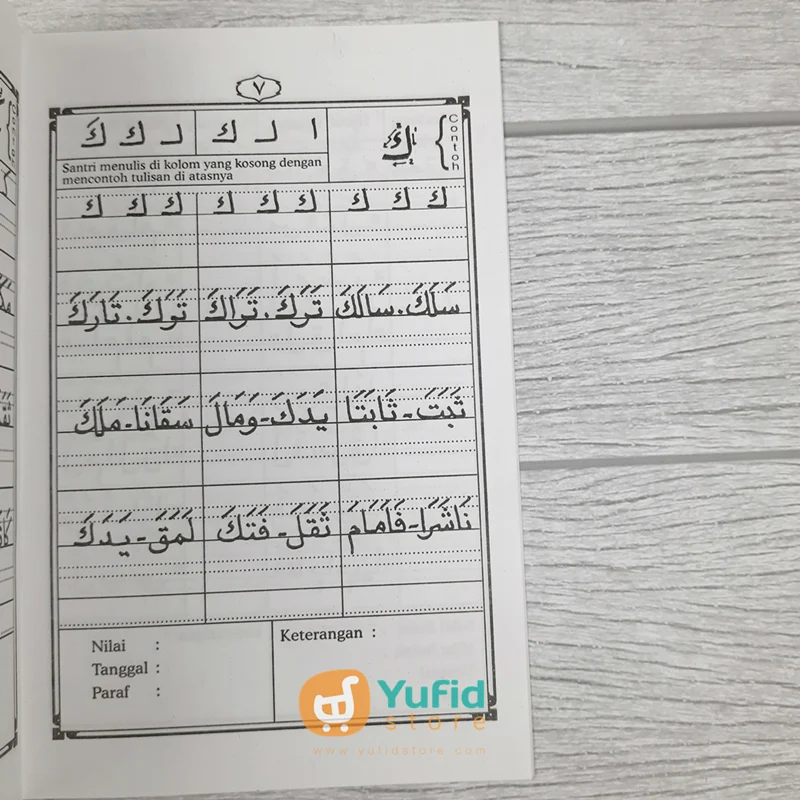 ٧
Contoh { ك
ا ـد ك ـد ك كَ
Santri menulis di kolom yang kosong dengan
mencontoh tulisan di atasnya
ك ك ك ك ك ك ك ك ك
سَلَكَ . سَالَكَ تَرَكَ . تَرَاكَ تَوَكَ . تَارَكَ
ثَبَتَ - ثَابَتَا يَدَكَ - وَمَالَ سَقَانَا - مَلَكَ
نَاشَرَا - فَأَمَامَ ثَقَلَ - فَتَكَ لَمَقَ - يَدَكَ
Nilai :
Tanggal :
Paraf :
Keterangan :
Yufid
store
www.yufidstore.com